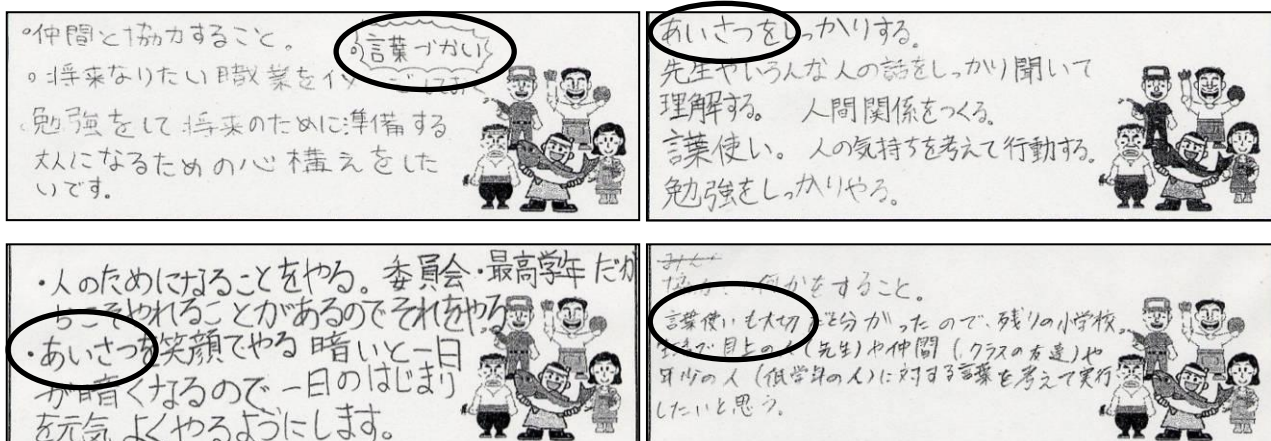 ・仲間と協力すること。
・言葉づかい
・将来なりたい職業を
勉強をして将来のために準備する
大人になるための心構えをした
いです。
あいさつをしっかりする。
先生やいろんな人の話をしっかり聞いて
理解する。 人間関係をつくる。
言葉使い。 人の気持ちを考えて行動する。
勉強をしっかりやる。
・人のためになることをやる。委員会・最高学年だか
らこそやれることがあるのでそれをやる
・あいさつを笑顔でやる 暗いと一日
が暗くなるので一日のはじまり
を元気よくやるようにします。
何かをすること。
言葉使いも大切だと分かったので、残りの小学校
目上の人(先生)や仲間(クラスの友達)や
年少の人(低学年の人)に対する言葉を考えて実行
したいと思う。